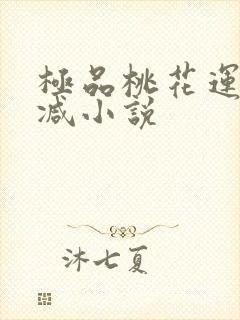 極品桃花運
减小說
沐七夏